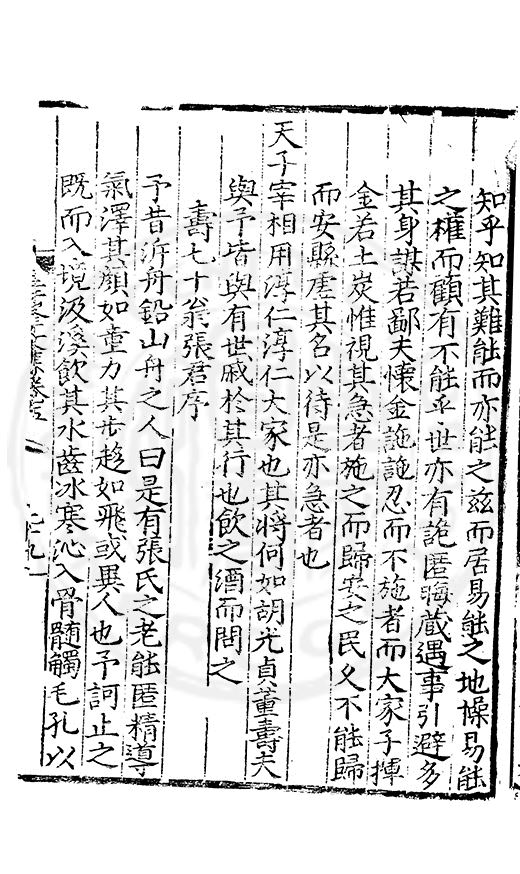 知乎知其難能而亦能之茲而居易能之地操易能
之權而顧有不能乎世亦有詭匿晦藏遇事引避多
其身謀若鄙夫懷金訑訑忍而不施者而大家子揮
金若土炭惟視其急者施之而歸安之民又不能歸
而安縣虛其名以待是亦急者也
天子宰相用淳仁淳仁大家也其將何如胡光貞董壽夫
與予皆與有世戚於其行也飲之酒而問之
壽七十翁張君序
予昔泝舟鉛山舟之人曰是有張氏之老能匿精導
氣澤其顏如童力其步趍如飛或異人也予訶止之
既而入境汲溪飲其水齒冰寒沁入骨髓觸毛孔以